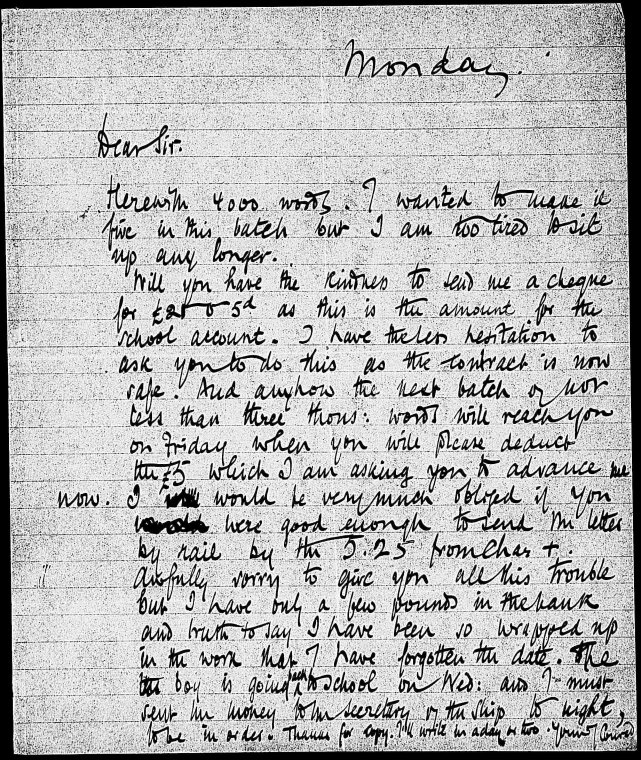 Monday.
Dear Sir.
Herewith 4000 words. I wanted to make it
five in this batch but I am too tired to sit
up any longer.
Will you have the kindness to send me a cheque
for £25 0 5d as this is the amount for the
school account. I have the less hesitation to
ask you to do this as the contract is now
safe. And anyhow the next batch of not
less than three thous: words will reach you
on Friday when you will please deduct
the £5 which I am asking you to advance me
now. I would be very much obliged if you
were good enough to send the letter
by rail by the 5.25 from Char +.
Awfully sorry to give you all this trouble
but I have only a few pounds in the bank
and truth to say I have been so wrapped up
in the work that I have forgotten the date. The
boy is going back to school on Wed: and I must
sent the money to the secretary of the ship to night,
to be in order. Thanks for copy. I'll write in a day or two. Yours J Conrad